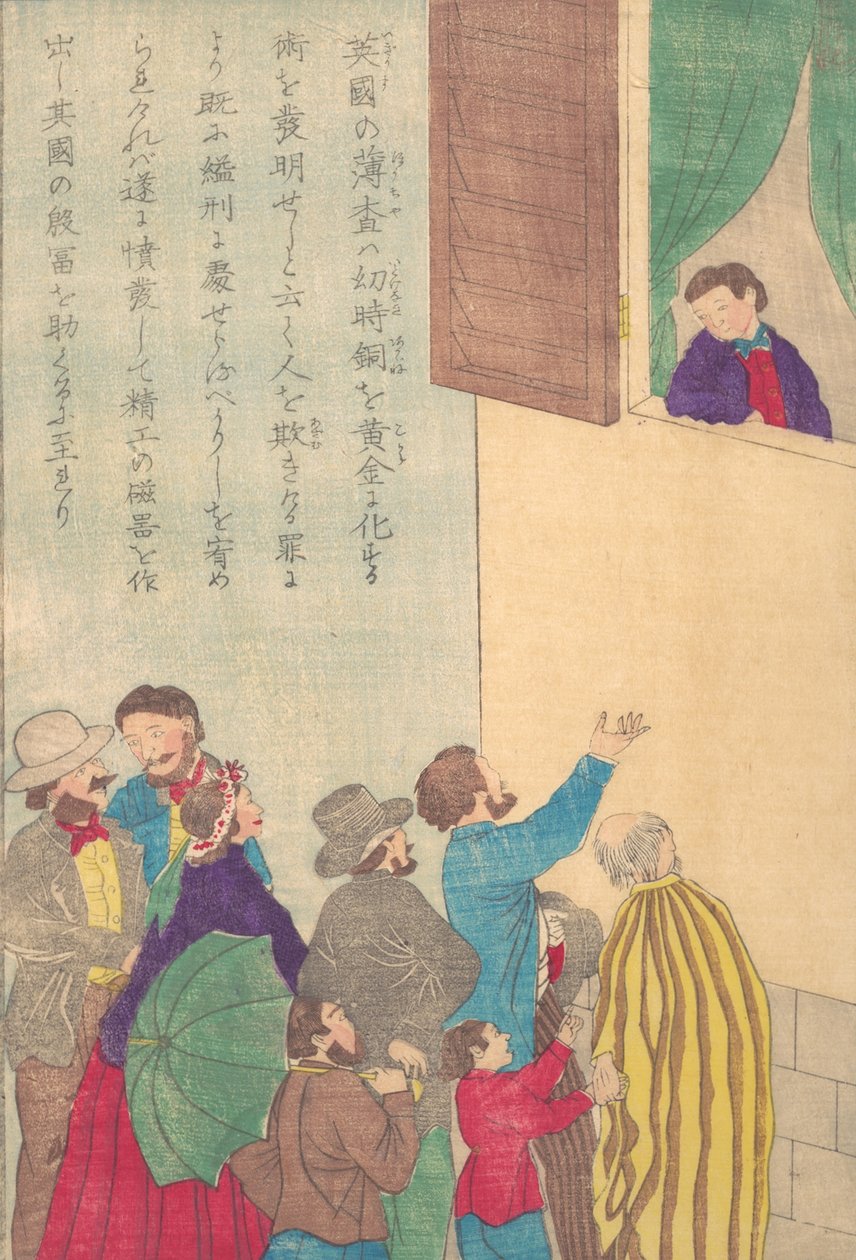 英國の薄査ハ幼時銅を黄金に化する
術を發明せしと云て人を欺きける罪に
より既に縊刑に處せらるべかりしを宥め
られければ遂に憤發して精工の磁噐を作
出し其國の殷富を助くるに至れり